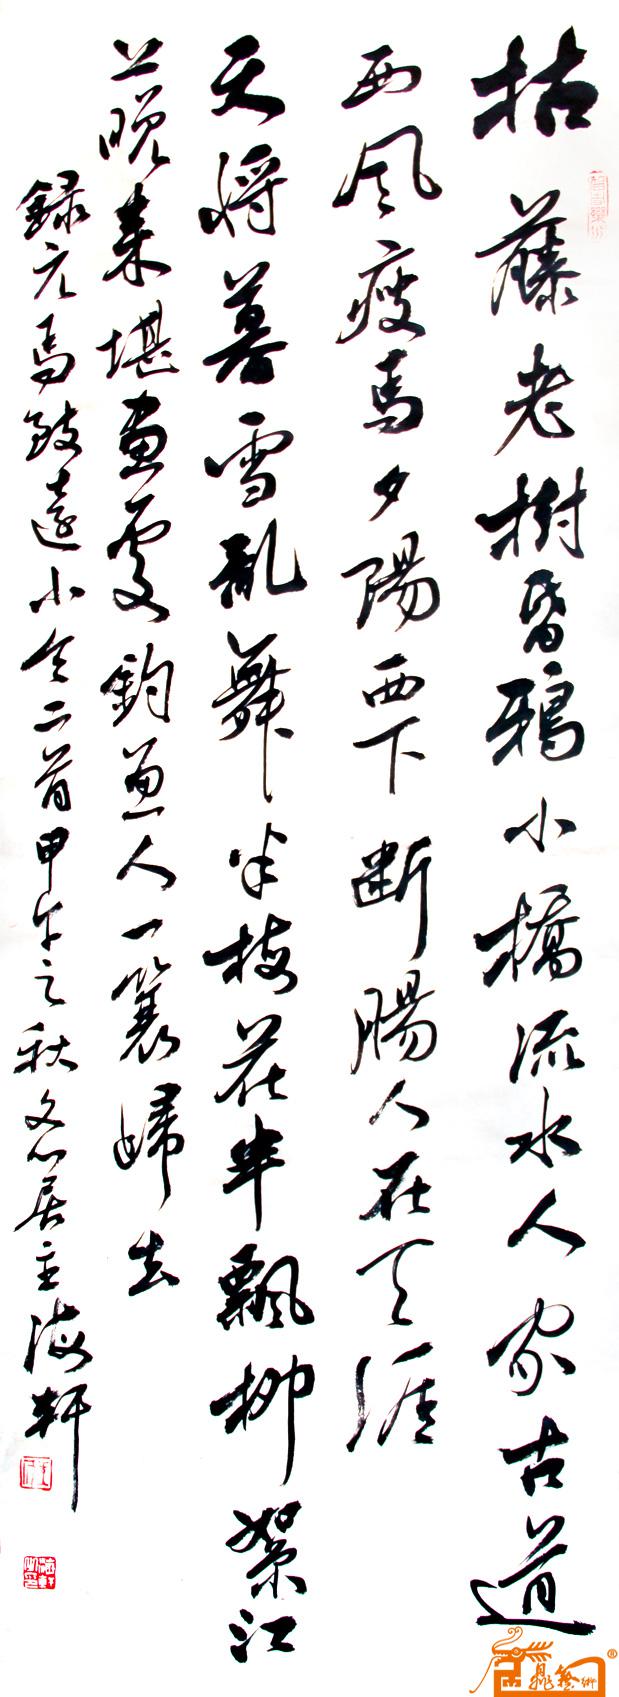 枯藤老樹昏鴉小橋流水人家古道
西風瘦馬夕陽西下斷腸人在天涯
天將暮雪亂舞半梅花半飄柳絮江
上晚來堪畫處釣魚人一蓑歸去
錄元馬致遠小令二首甲午之秋文心居主海軒